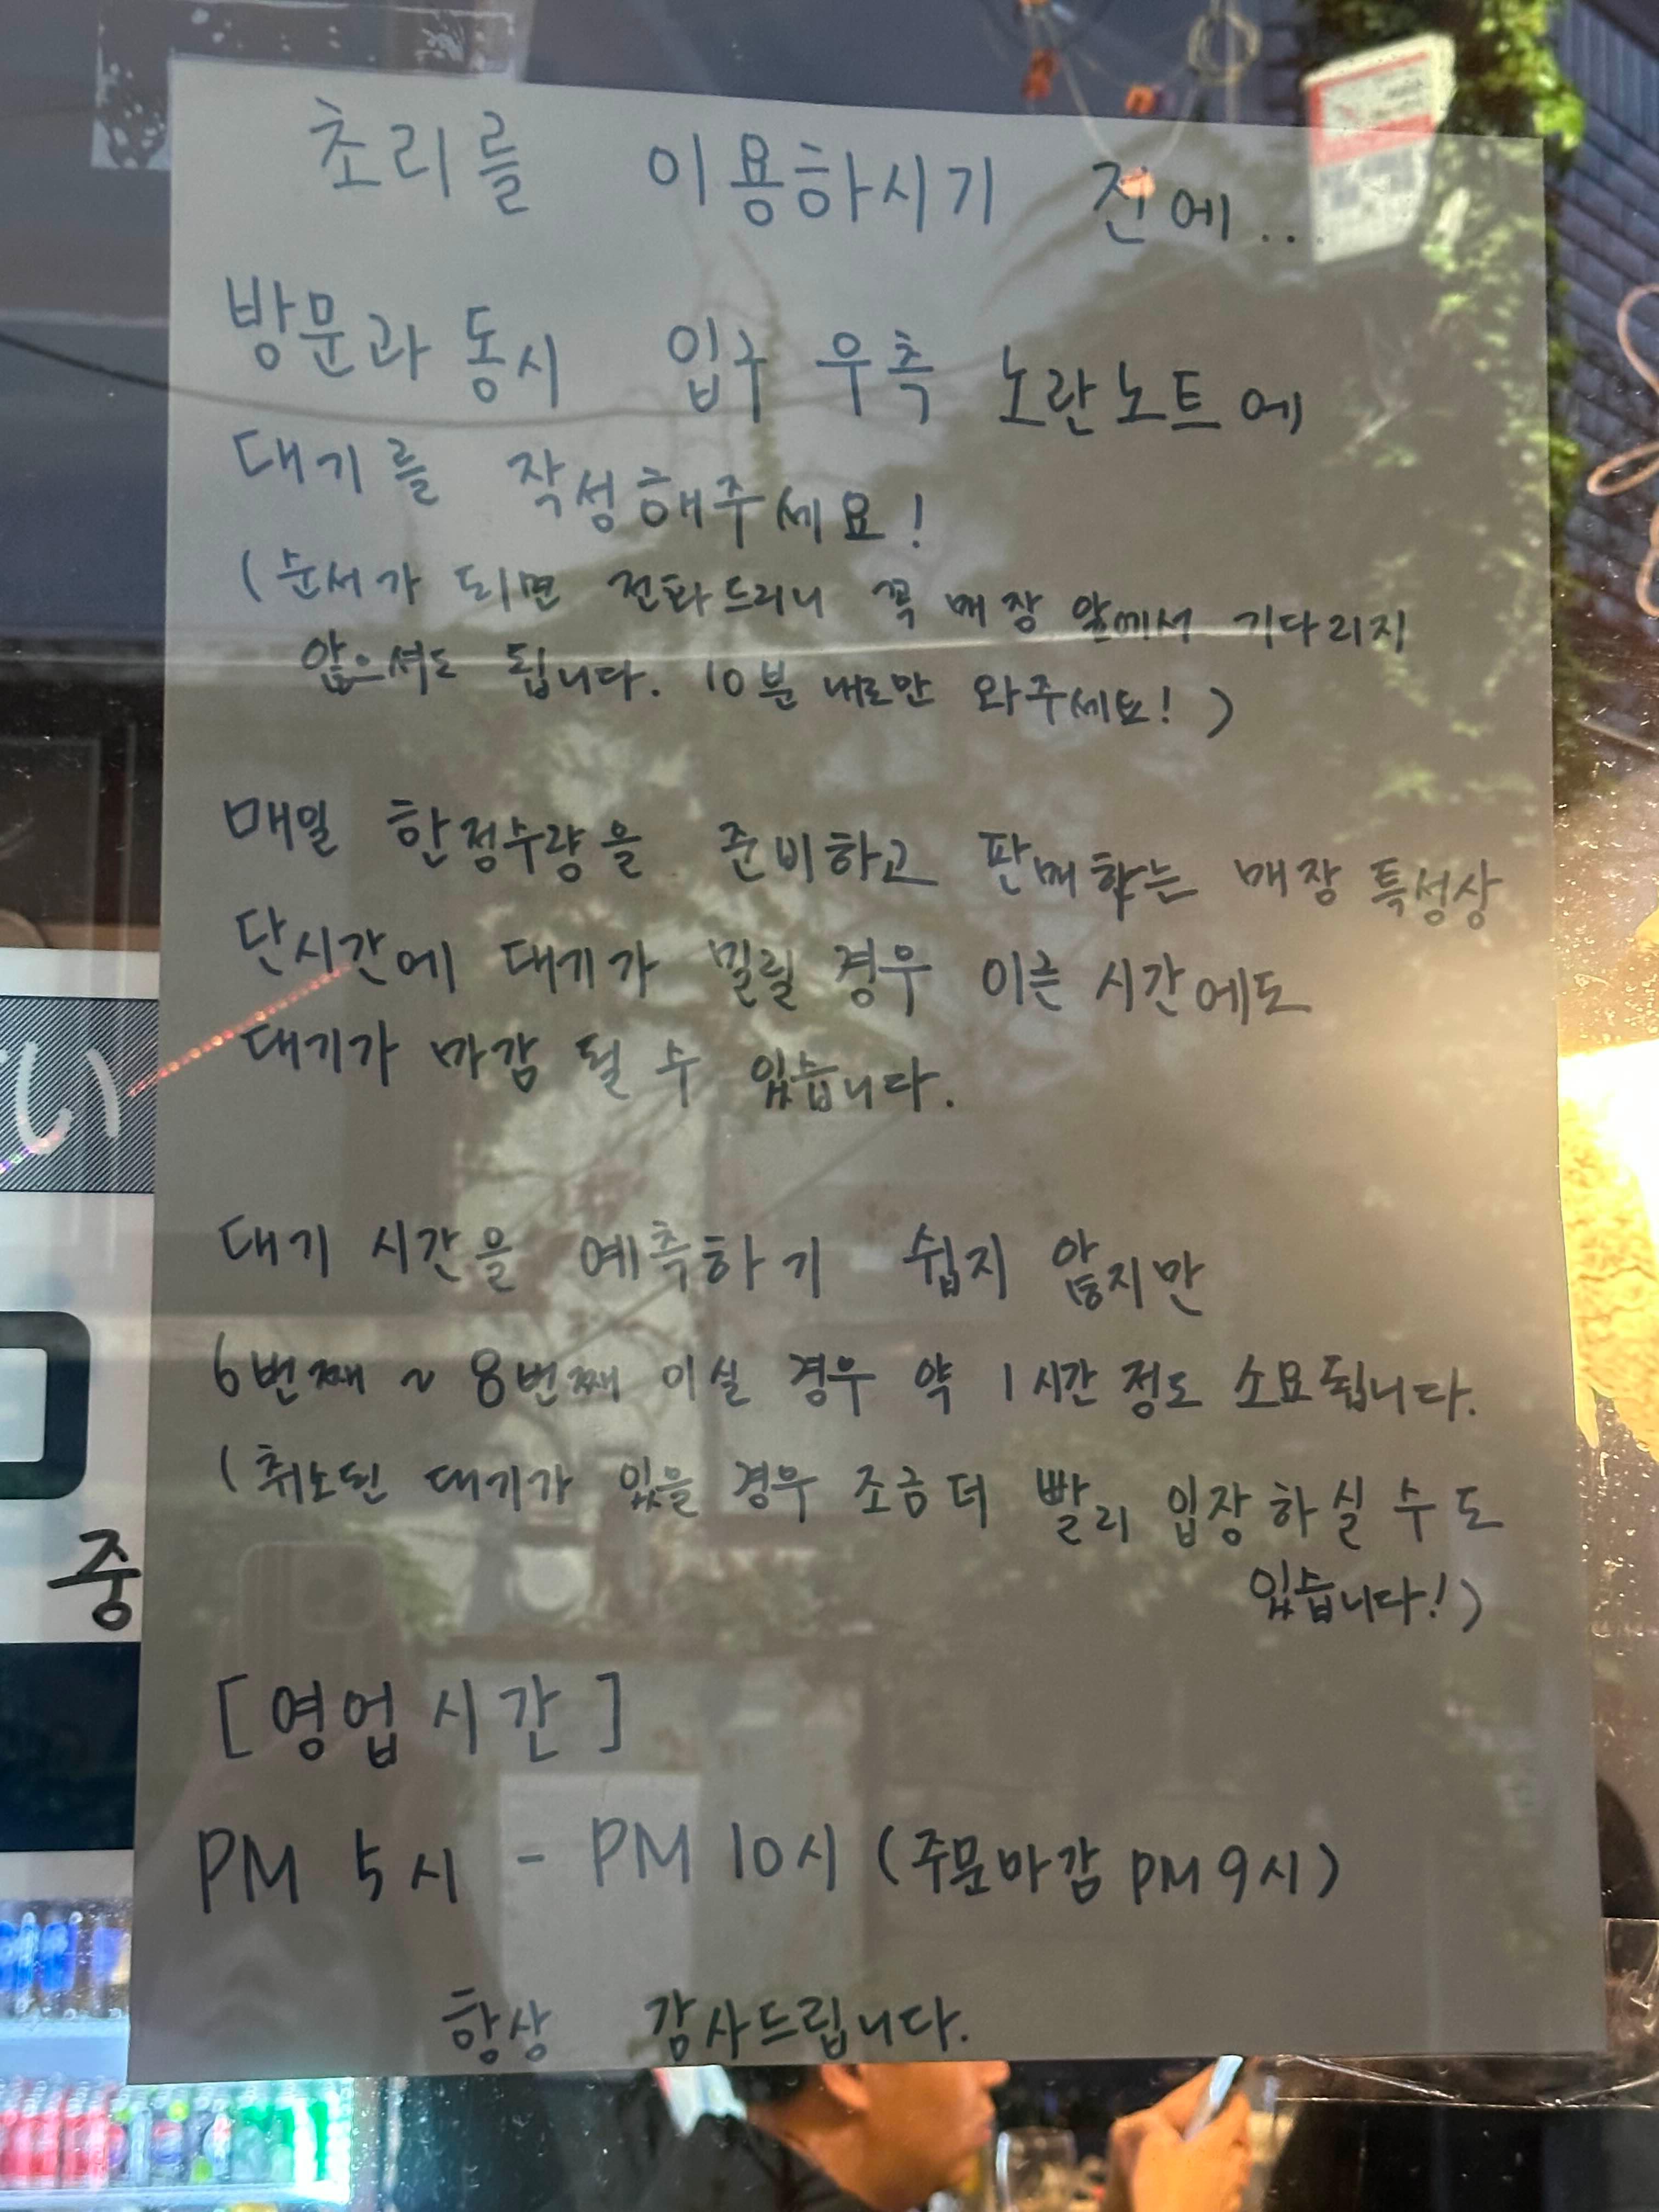 초리를 이용하시기 전에..
방문과 동시 입구 우측 노란노트에
대기를 작성해주세요!
(순서가 되면 전화드리니 꼭 매장 앞에서 기다리지
않으셔도 됩니다. 10분 내로만 와주세요!)
매일 한정수량을 준비하고 판매하는 매장 특성상
단시간에 대기가 밀릴 경우 이른 시간에도
대기가 마감 될 수 있습니다.
대기 시간을 예측하기 쉽지 않지만
6번째 ~ 8번째 이실 경우 약 1시간 정도 소요됩니다.
(취소된 대기가 있을 경우 조금 더 빨리 입장하실 수도
있습니다!)
중
[영업시간]
PM 5시 - PM 10시 (주문마감 PM 9시)
항상 감사드립니다.